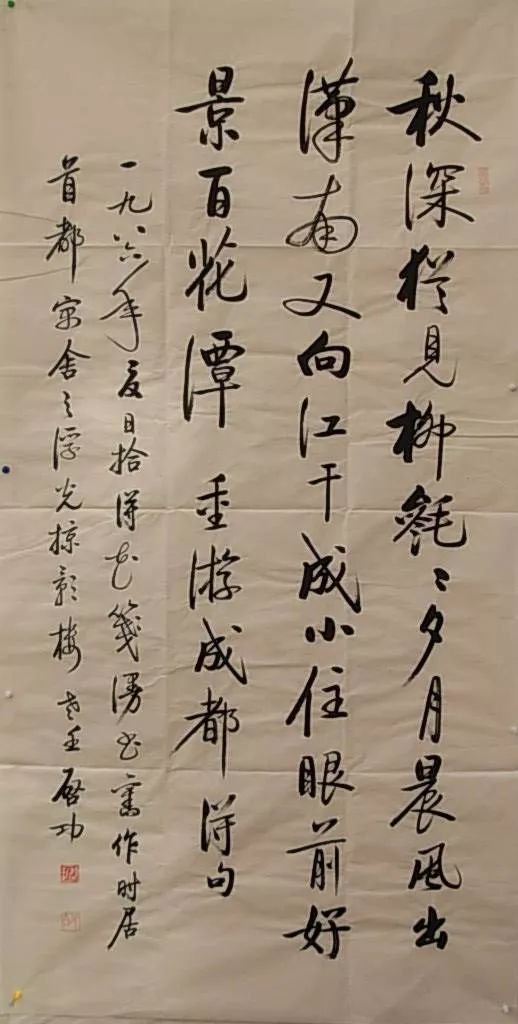 秋深犹見柳毿〻夕月晨風出
漢南又向江干成小住眼前好
景百花潭 重游成都得句
一九八六年夏日拾得花箋漫书舊作时居
首都寓舍之浮光掠影樓 启功